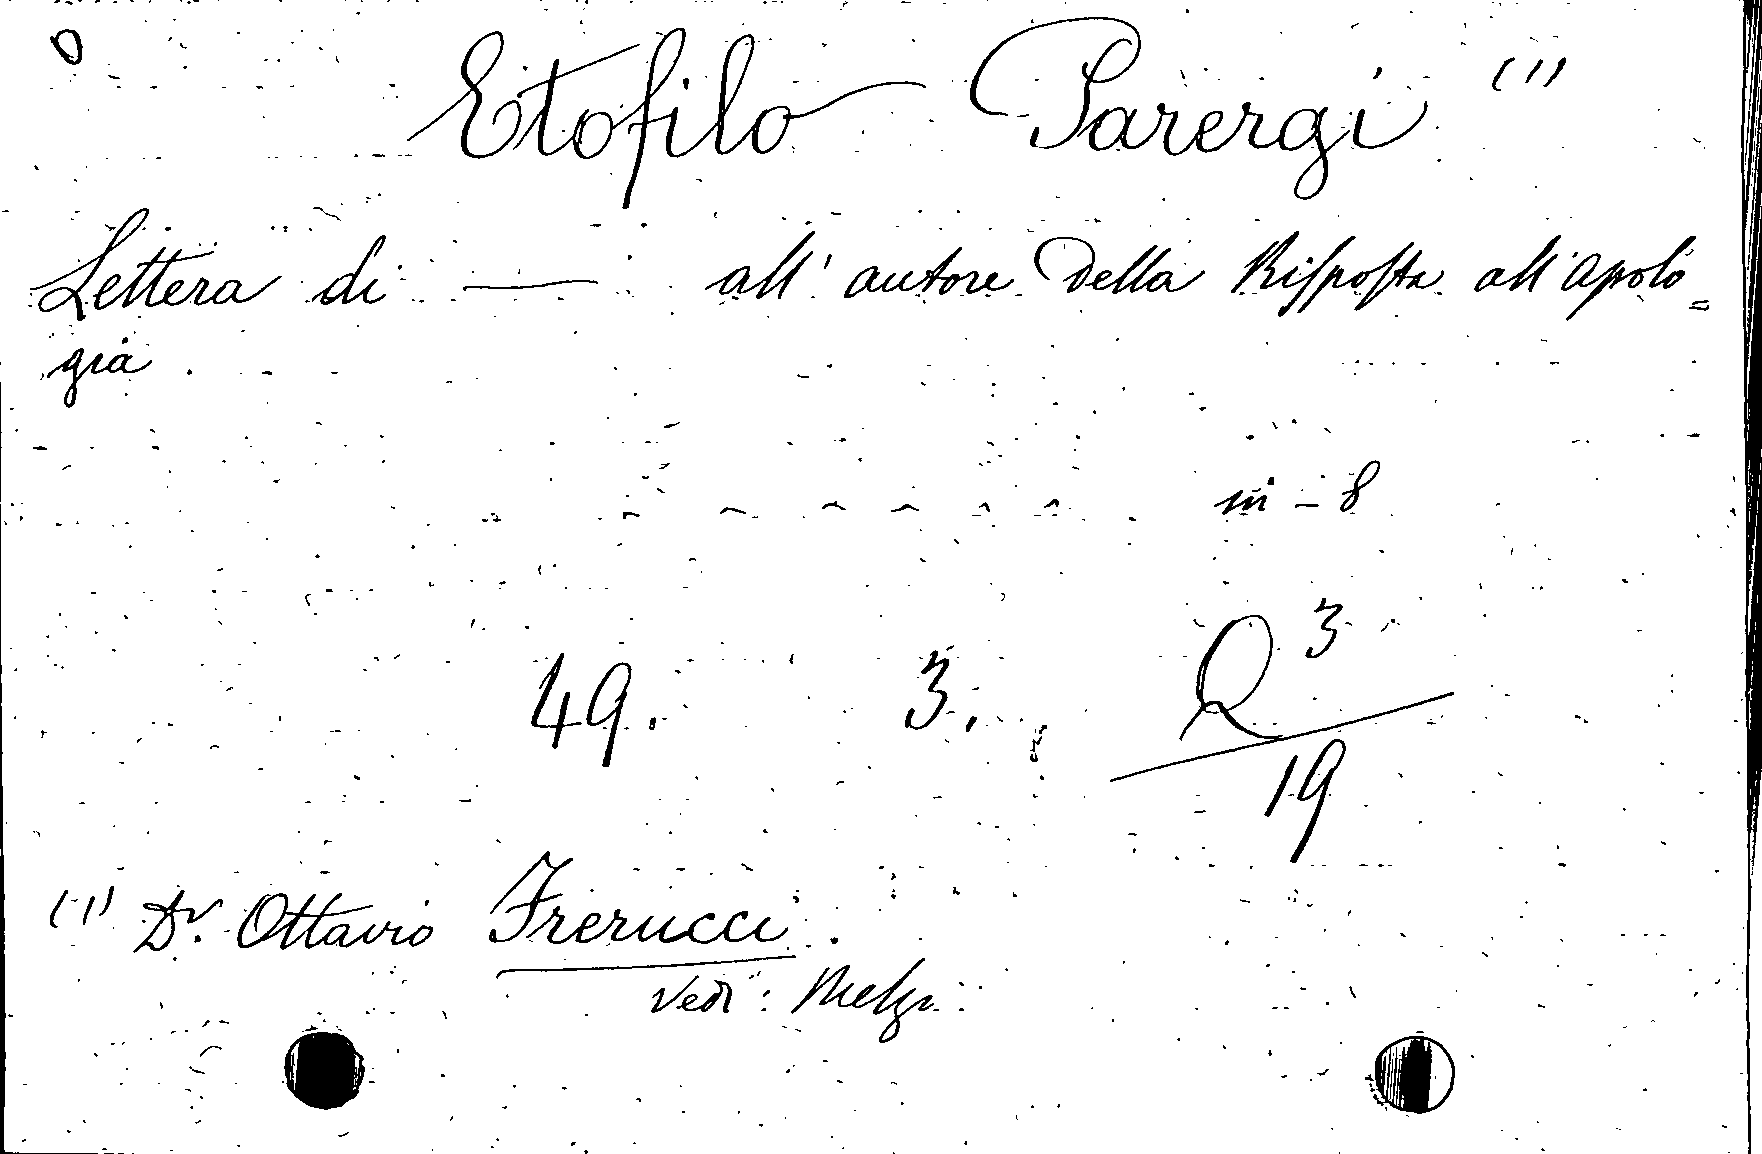 Etofilo Parergi (1)
Lettera di —— all' autore della Risposta all' apolo=
gia.
in - 8
49. 3. Q 3
19
(1) Dr. Ottavio Frerucci.
Vedi: Melzi